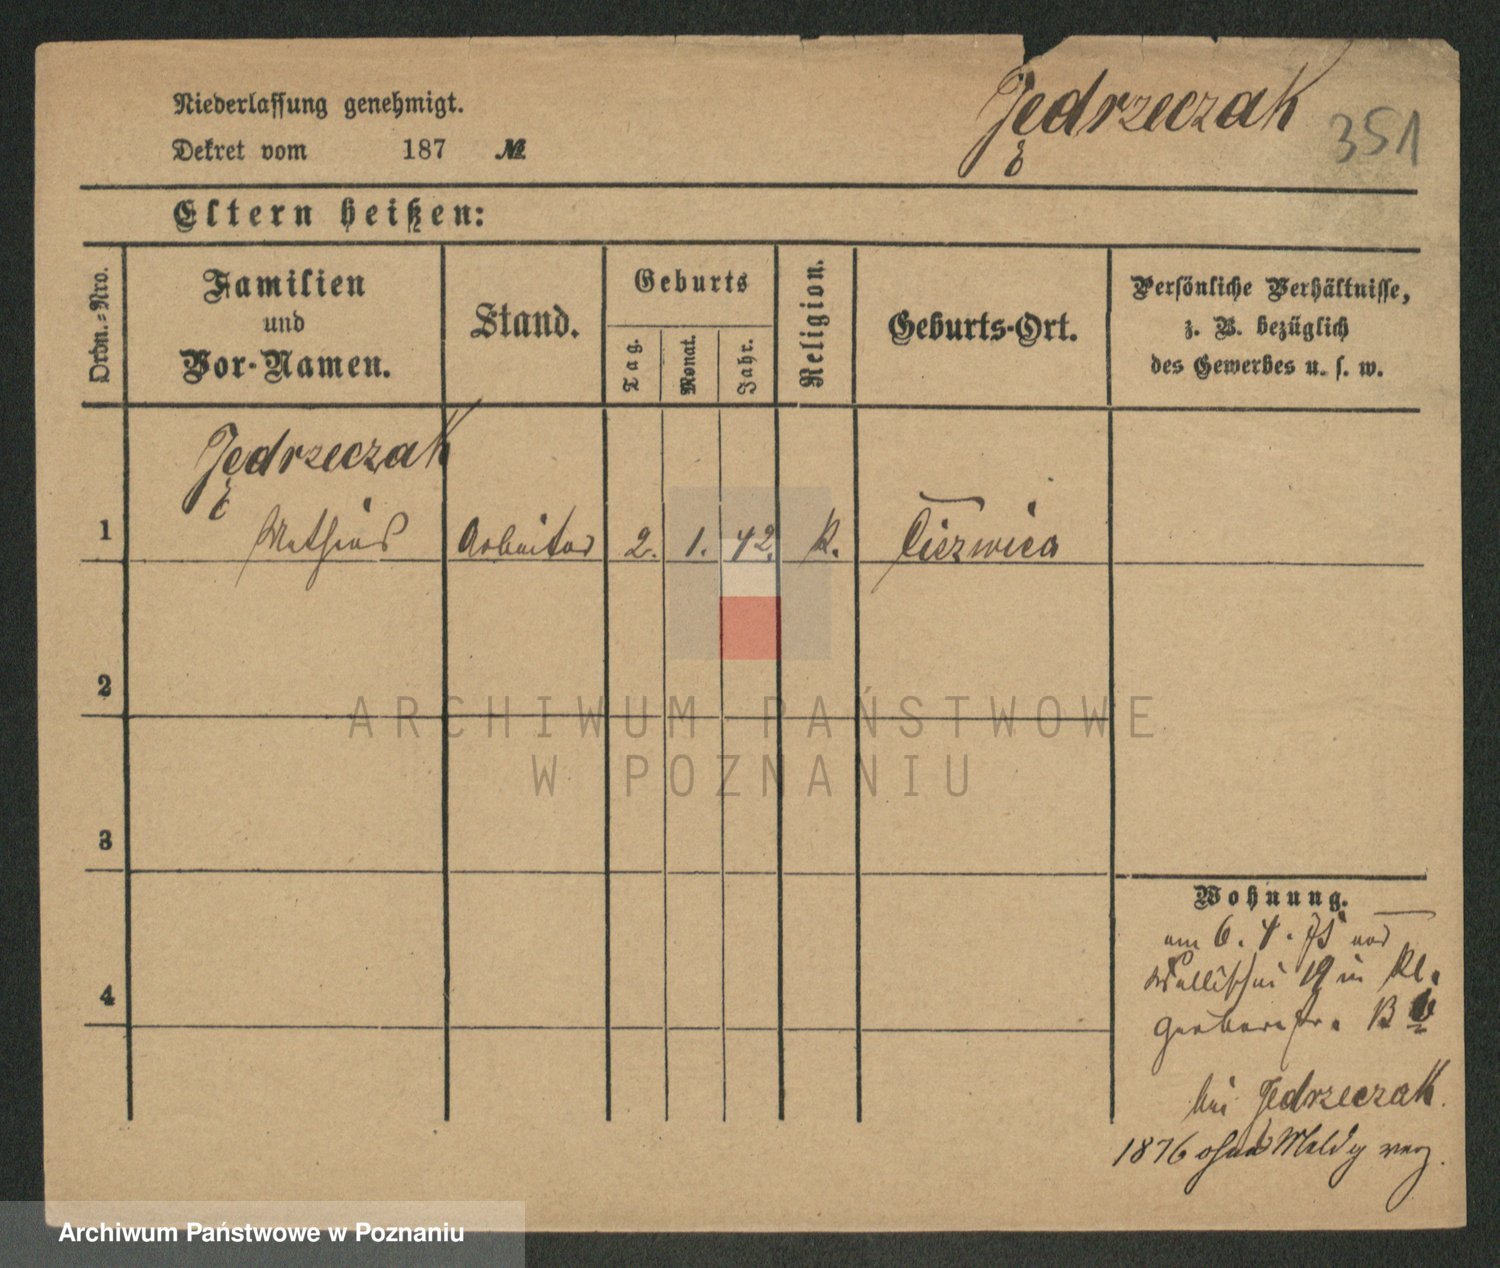 Niederlassung genehmigt.
Dekret vom 187 №
Jędrzeczak
351
Eltern heißen:
Ordn.-Nro.
Familien
und
Vor-Namen.
Stand.
Geburts
Tag.
Monat.
Jahr.
Religion.
Geburts-Ort.
Persönliche Verhältnisse,
z. B. bezüglich
des Gewerbes u. s. w.
Jędrzeczak
1 Mathias Arbeiter 2. 1. 42. K.
2
3
4
Wohnung.
am 6. 4. 75 von
Wallischei 19 in Kl.
Gerberstr.
bei Jedrzeczak.
1876 ohne Meldg verz.
ARCHIWUM PAŃSTWOWE
W POZNANIU
Archiwum Państwowe w Poznaniu